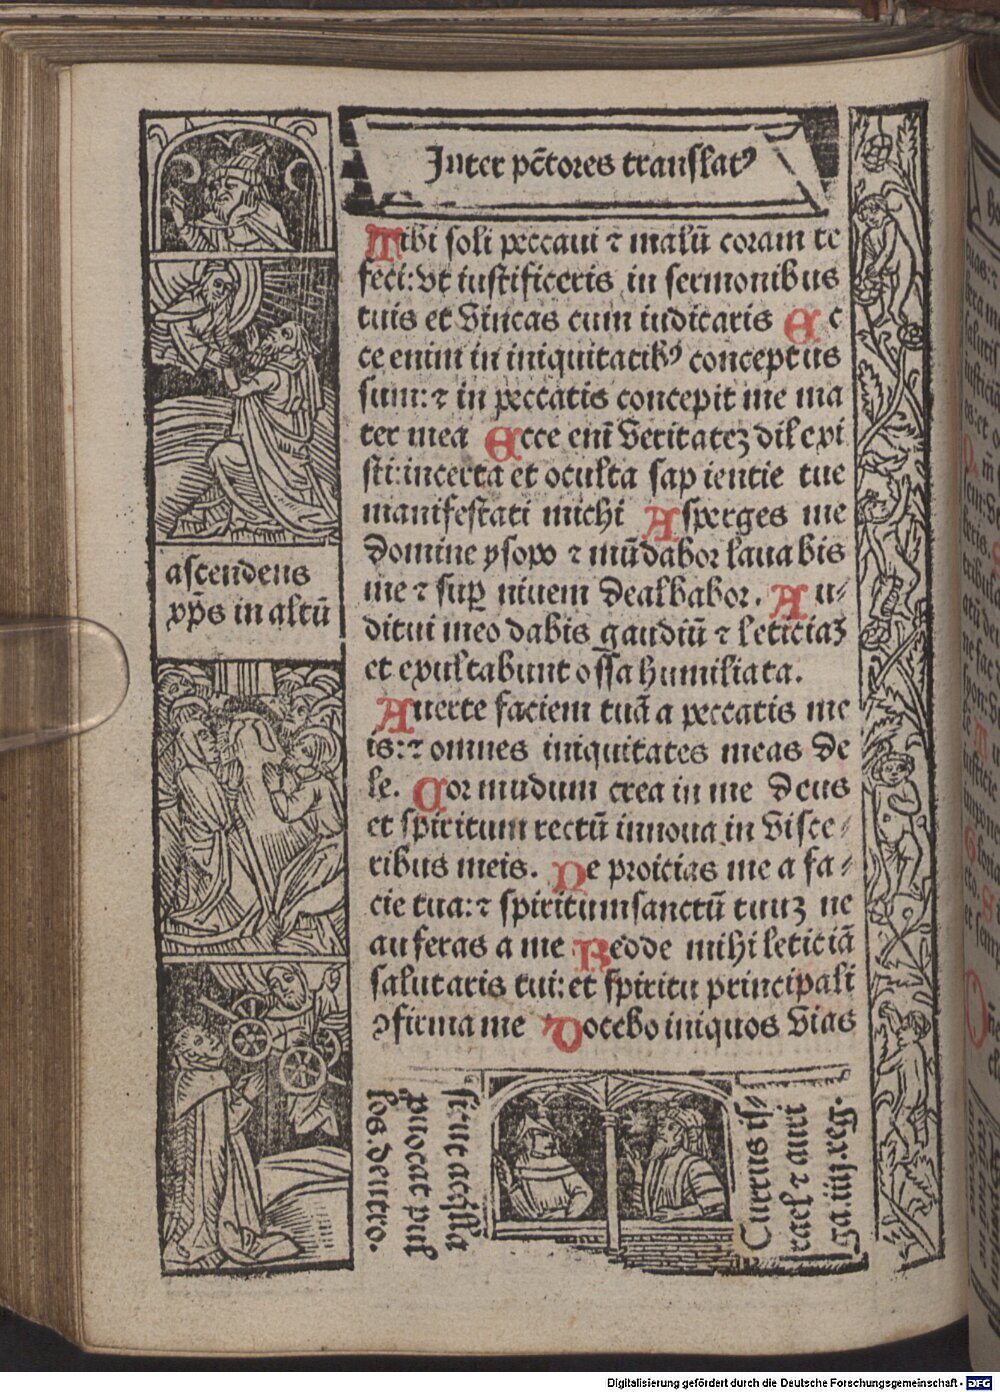 Inter pc̄tores translatꝰ
Tibi soli peccaui ⁊ malū coram te
feci: vt iustificeris in sermonibus
tuis et vincas cum iudicaris Ec
ce enim in iniquitatibꝰ conceptus
sum: ⁊ in peccatis concepit me ma
ter mea Ecce eni veritatez dilexi
sti: incerta et oculta sapientie tue
manifestati michi Asperges me
domine ysopo ⁊ mūdabor laua bis
me ⁊ suꝑ niuem dealbabor. Au-
ditui meo dabis gaudiū ⁊ leticiaz
et exultabunt ossa humiliata.
Auerte faciem tuā a peccatis me
is: ⁊ omnes iniquitates meas de
le. Cor mudum crea in me deus
et spiritum rectū innoua in visce-
ribus meis. Ne proicias me a fa-
cie tua: ⁊ spiritumsanctū tuuz ne
auferas a me Redde mihi leticiā
salutaris tui: et spiritu principali
ꝯfirma me Docebo iniquos vias
ascendens
xp̄s in altū
sicut
los. deutro.
Currus is-
rael ⁊ auri
ga. iiij. reg.
Digitalisierung gefördert durch die Deutsche Forschungsgemeinschaft - DFG